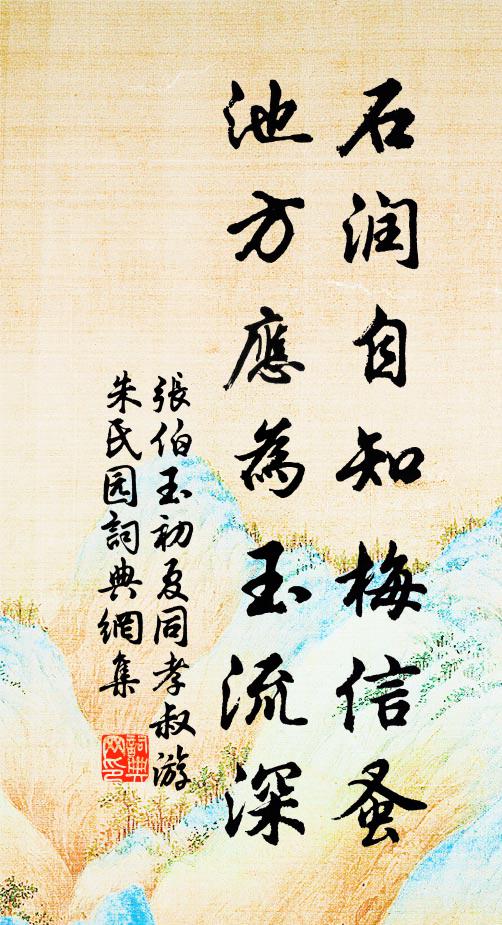 石润自知梅信蚤
池方應為玉流深
張伯玉初夏同孝叔游
朱氏园詞典網集
詞典网印